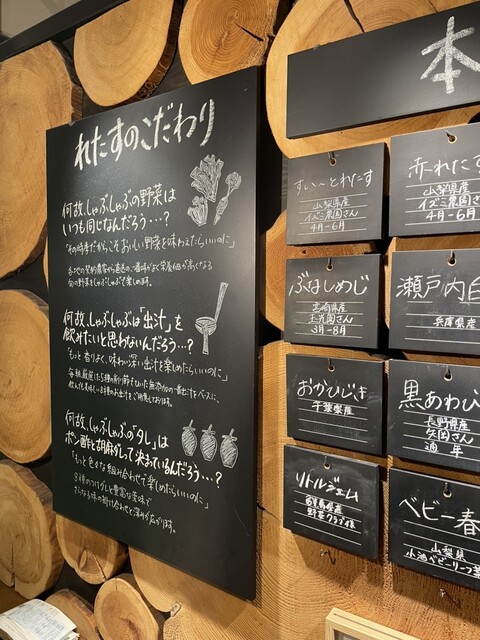 れたすのこだわり
何故、しゃぶしゃぶの野菜は
いつも同じなんだろう…?
「その時季だからこそおいしい野菜を味わえたらいいのに」
旬の野菜をしゃぶしゃぶで楽しめます。
何故、しゃぶしゃぶは「出汁」を
飲みたいと思わないんだろう…?
「もっと香りよく、味わい深い出汁を楽しめたらいいのに」
何故、しゃぶしゃぶの「タレ」は
ポン酢と胡麻ダレって決まっているんだろう…?
「もっと色々な組み合わせで楽しめたらいいのに」
本
すい〜とれたす
山梨県産
イズミ農園さん
4月-6月
赤れたす
山梨県産
イズミ農園さん
4月-6月
ぶなしめじ
宮崎県産
3月-8月
瀬戸内白
兵庫県産
おかひじき
千葉県産
黒あわび
長野県産
矢岡さん
通年
リトルジェム
ベビー春
山梨県
小池ベビーリーフ菜